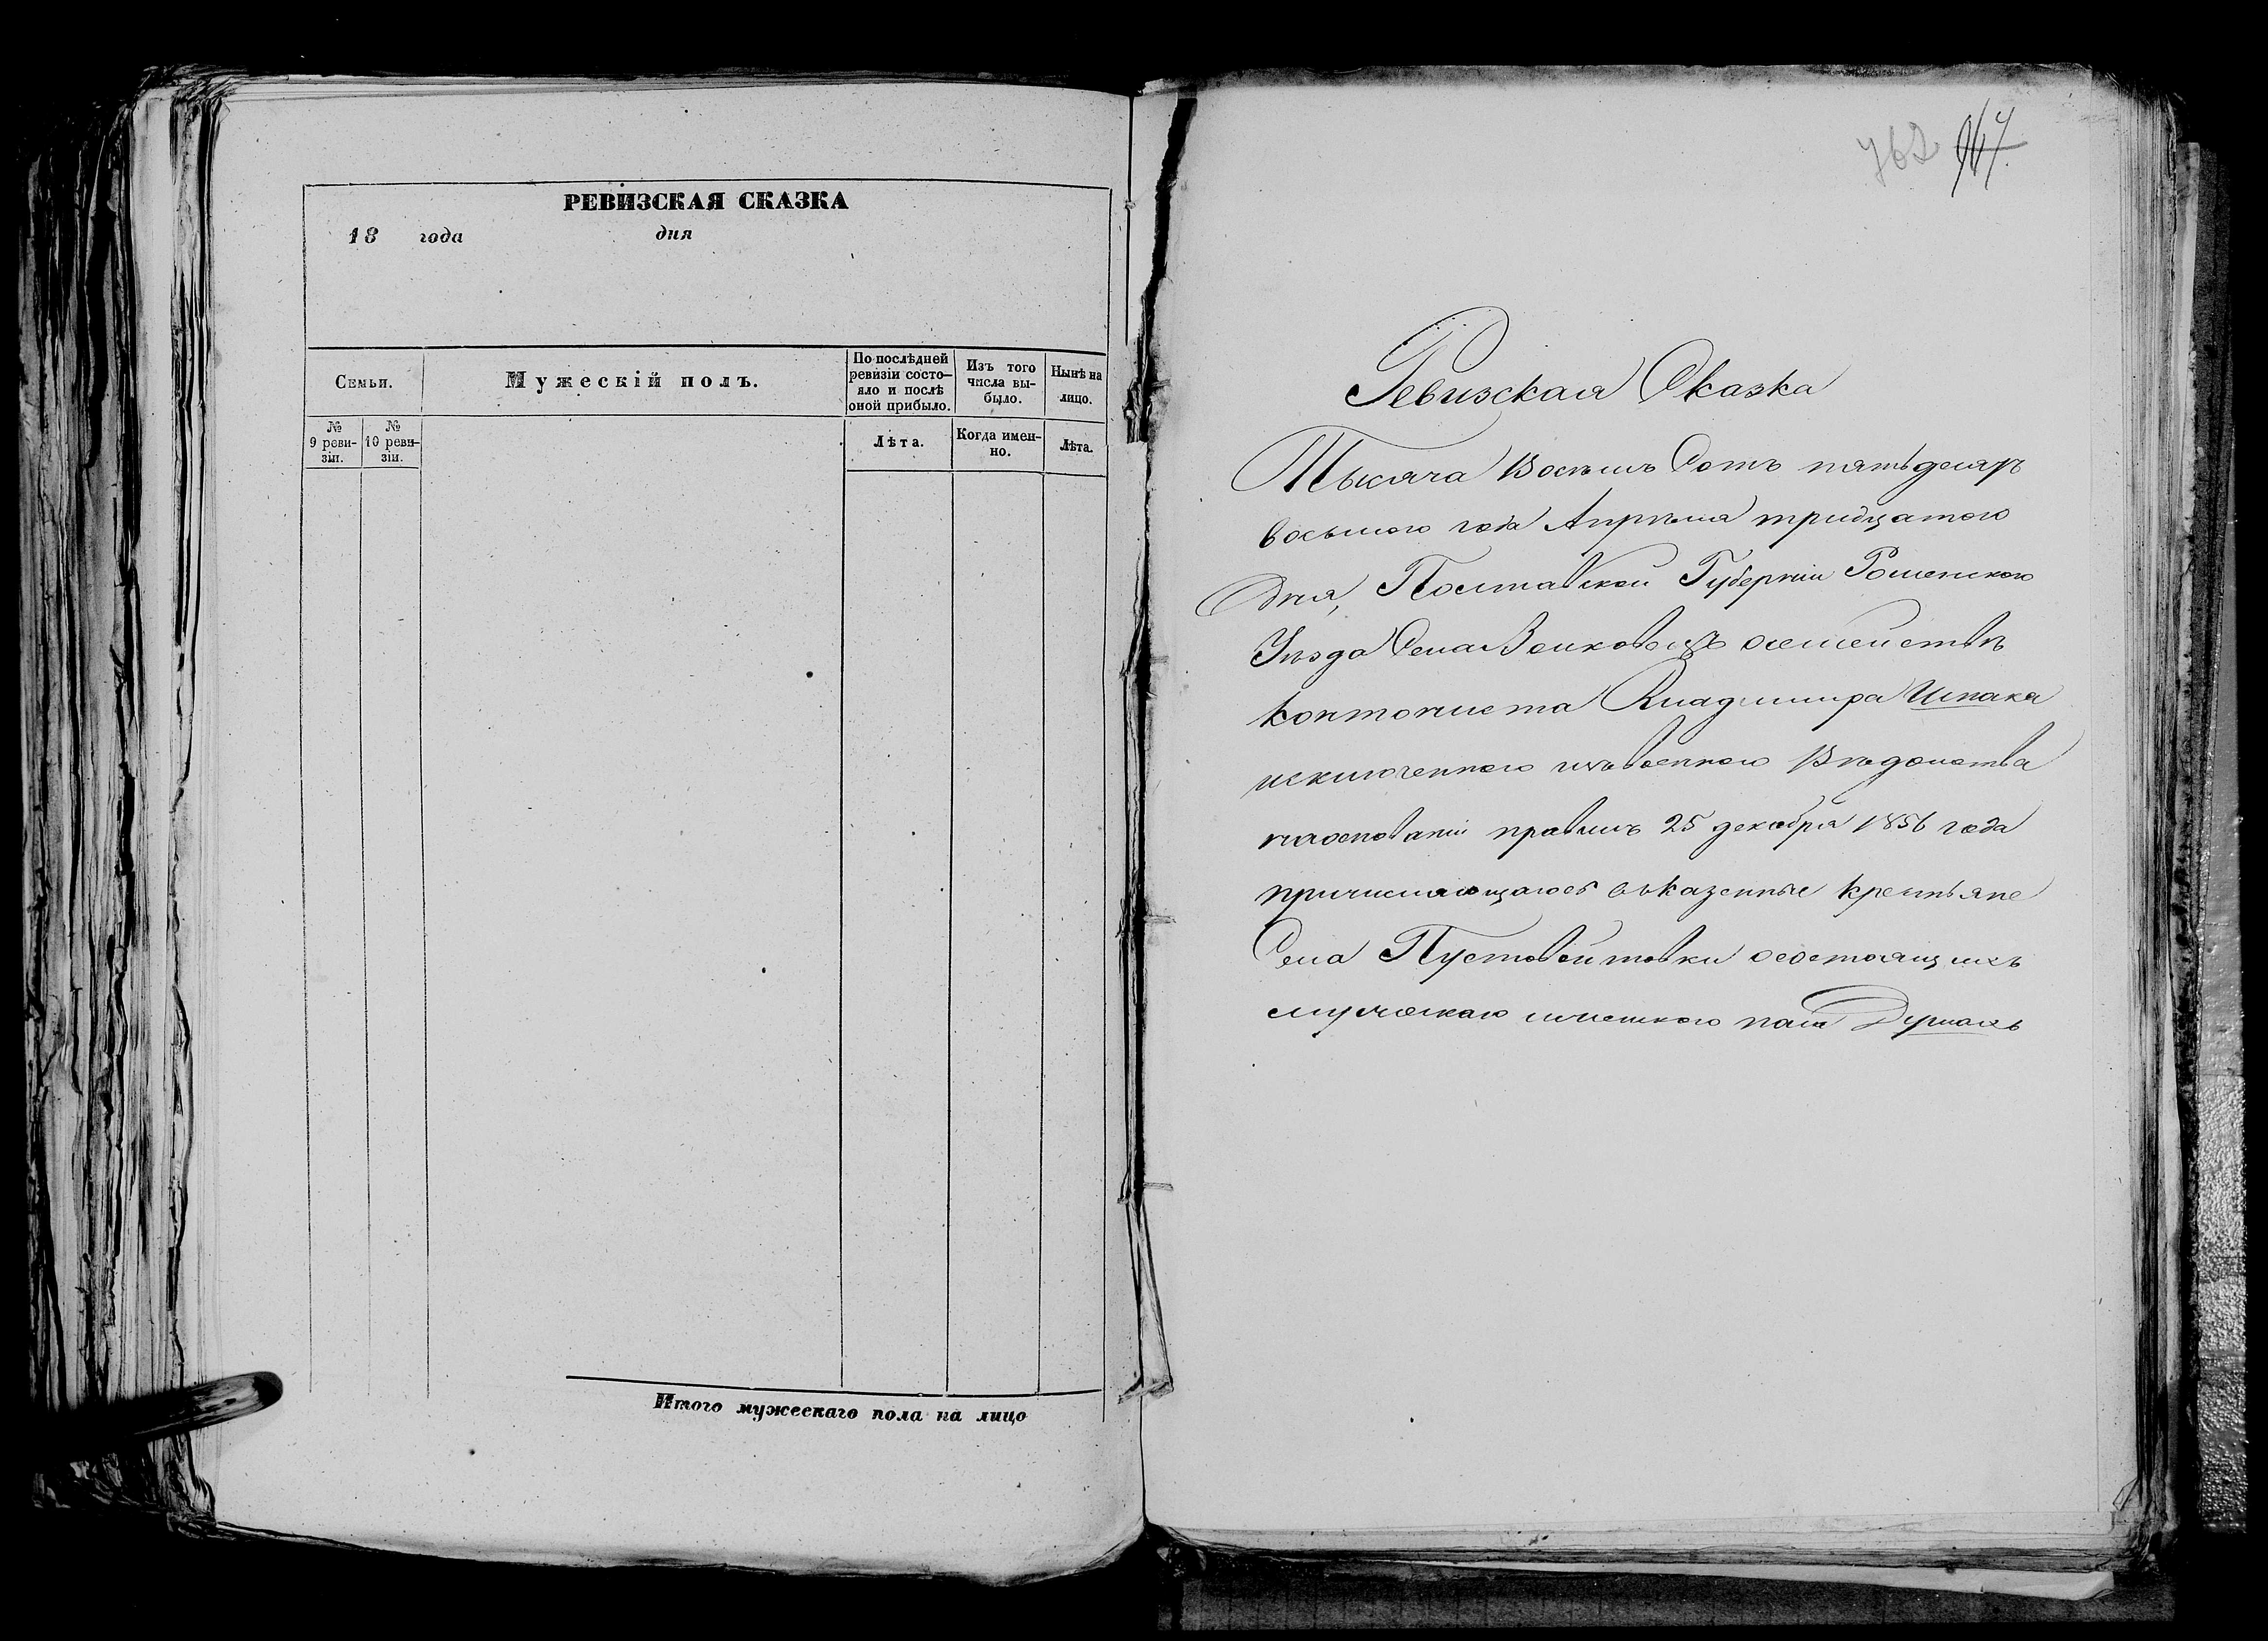 РЕВИЗСКАЯ СКАЗКА
18 года дня
Семьи.
Мужескій полъ.
По послѣдней
ревизіи состо-
яло и послѣ
оной прибыло.
Изъ того
числа вы-
было.
Нынѣ на
лицо.
№
9 реви-
зіи.
№
10 реви-
зіи.
Лѣта.
Когда имен-
но.
Лѣта.
Итого мужескаго пола на лицо
762 967.
Ревизская Сказка
Тысяча Восемь Сотъ пятьдесяр
восьмого года Апрѣля тридцатого
Дня, Полтавской Губерніи Роменского
Уѣзда Села осемействѣ
контониста Владимира Шпака
исключенного изъ военного Вѣдомства
наосновании правилъ 25 декабря 1856 года
причисляющагось въ казенные крестьяне
Села Пустовойтовки осостоящихъ
мужескаго иженского пола Душахъ